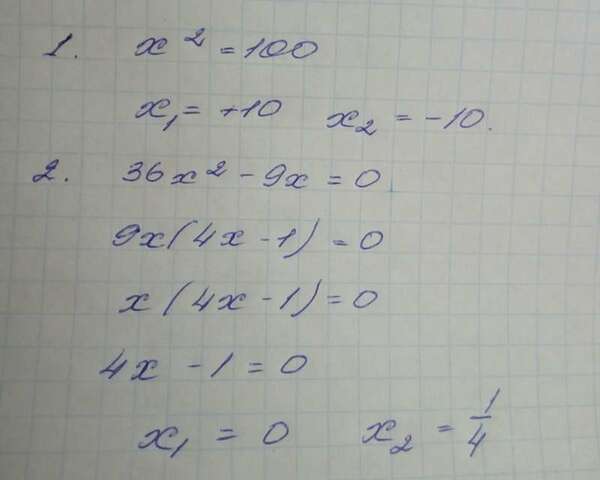 1. x² = 100
x₁ = +10 x₂ = -10.
2. 36x² - 9x = 0
9x(4x - 1) = 0
x(4x - 1) = 0
4x - 1 = 0
x₁ = 0 x₂ = 1/4